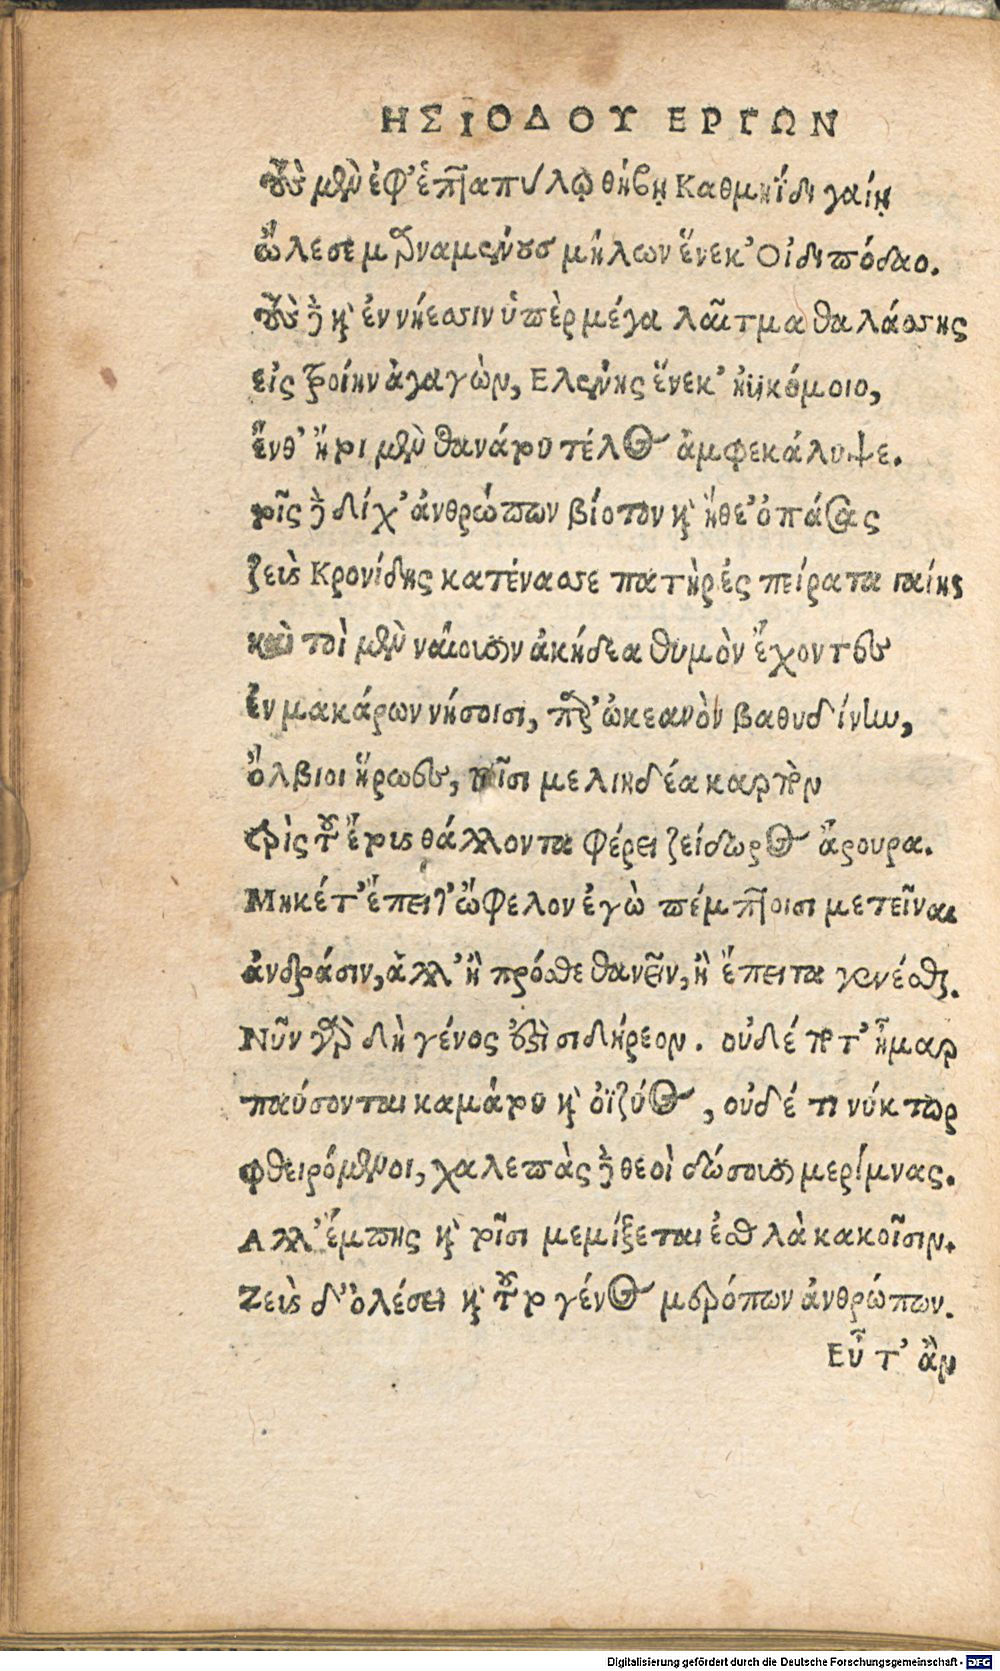 ΗΣΙΟΔΟΥ ΕΡΓΩΝ
τοὺς μὲν ἐφ' ἑπταπύλῳ θήβῃ Καθμηΐδι γαίῃ
ὤλεσε μαρναμένους μήλων ἕνεκ' Οἰδιπόδαο.
τοὺς δὲ καὶ ἐν νήεσσιν ὑπὲρ μέγα λαῖτμα θαλάσσης
εἰς τροίην ἀγαγὼν, Ελένης ἕνεκ' ἠϋκόμοιο,
ἔνθ' ἤτοι μὲν θανάτου τέλος ἀμφεκάλυψε.
τοῖς δὲ δίχ' ἀνθρώπων βίοτον καὶ ἤθε' ὀπάσας
ζεὺς Κρονίδης κατένασσε πατὴρ ἐς πείρατα γαίης
καὶ τοὶ μὲν ναίουσιν ἀκήδεα θυμὸν ἔχοντες
ἐν μακάρων νήσοισι, παρ' ὠκεανὸν βαθυδίνην,
ὄλβιοι ἥρωες, τοῖσι μελιηδέα καρπὸν
τρὶς τοῦ ἔτους θάλλοντα φέρει ζείδωρος ἄρουρα.
Μηκέτ' ἔπειτ' ὤφελον ἐγὼ πέμπτοισι μετεῖναι
ἀνδράσιν, ἀλλ' ἢ πρόσθε θανεῖν, ἢ ἔπειτα γενέσθαι.
Νῦν γὰρ δὴ γένος ἐστὶ σιδήρεον. οὐδέ ποτ' ἦμαρ
παύσονται καμάτου καὶ ὀϊζύος, οὐδέ τι νύκτωρ
φθειρόμενοι, χαλεπὰς δὲ θεοὶ δώσουσι μερίμνας.
Αλλ' ἔμπης καὶ τοῖσι μεμίξεται ἐσθλὰ κακοῖσιν.
Ζεὺς δ' ὀλέσει καὶ τοῦτο γένος μερόπων ἀνθρώπων.
Εὖ τ' ἂν
Digitalisierung gefördert durch die Deutsche Forschungsgemeinschaft - DFG